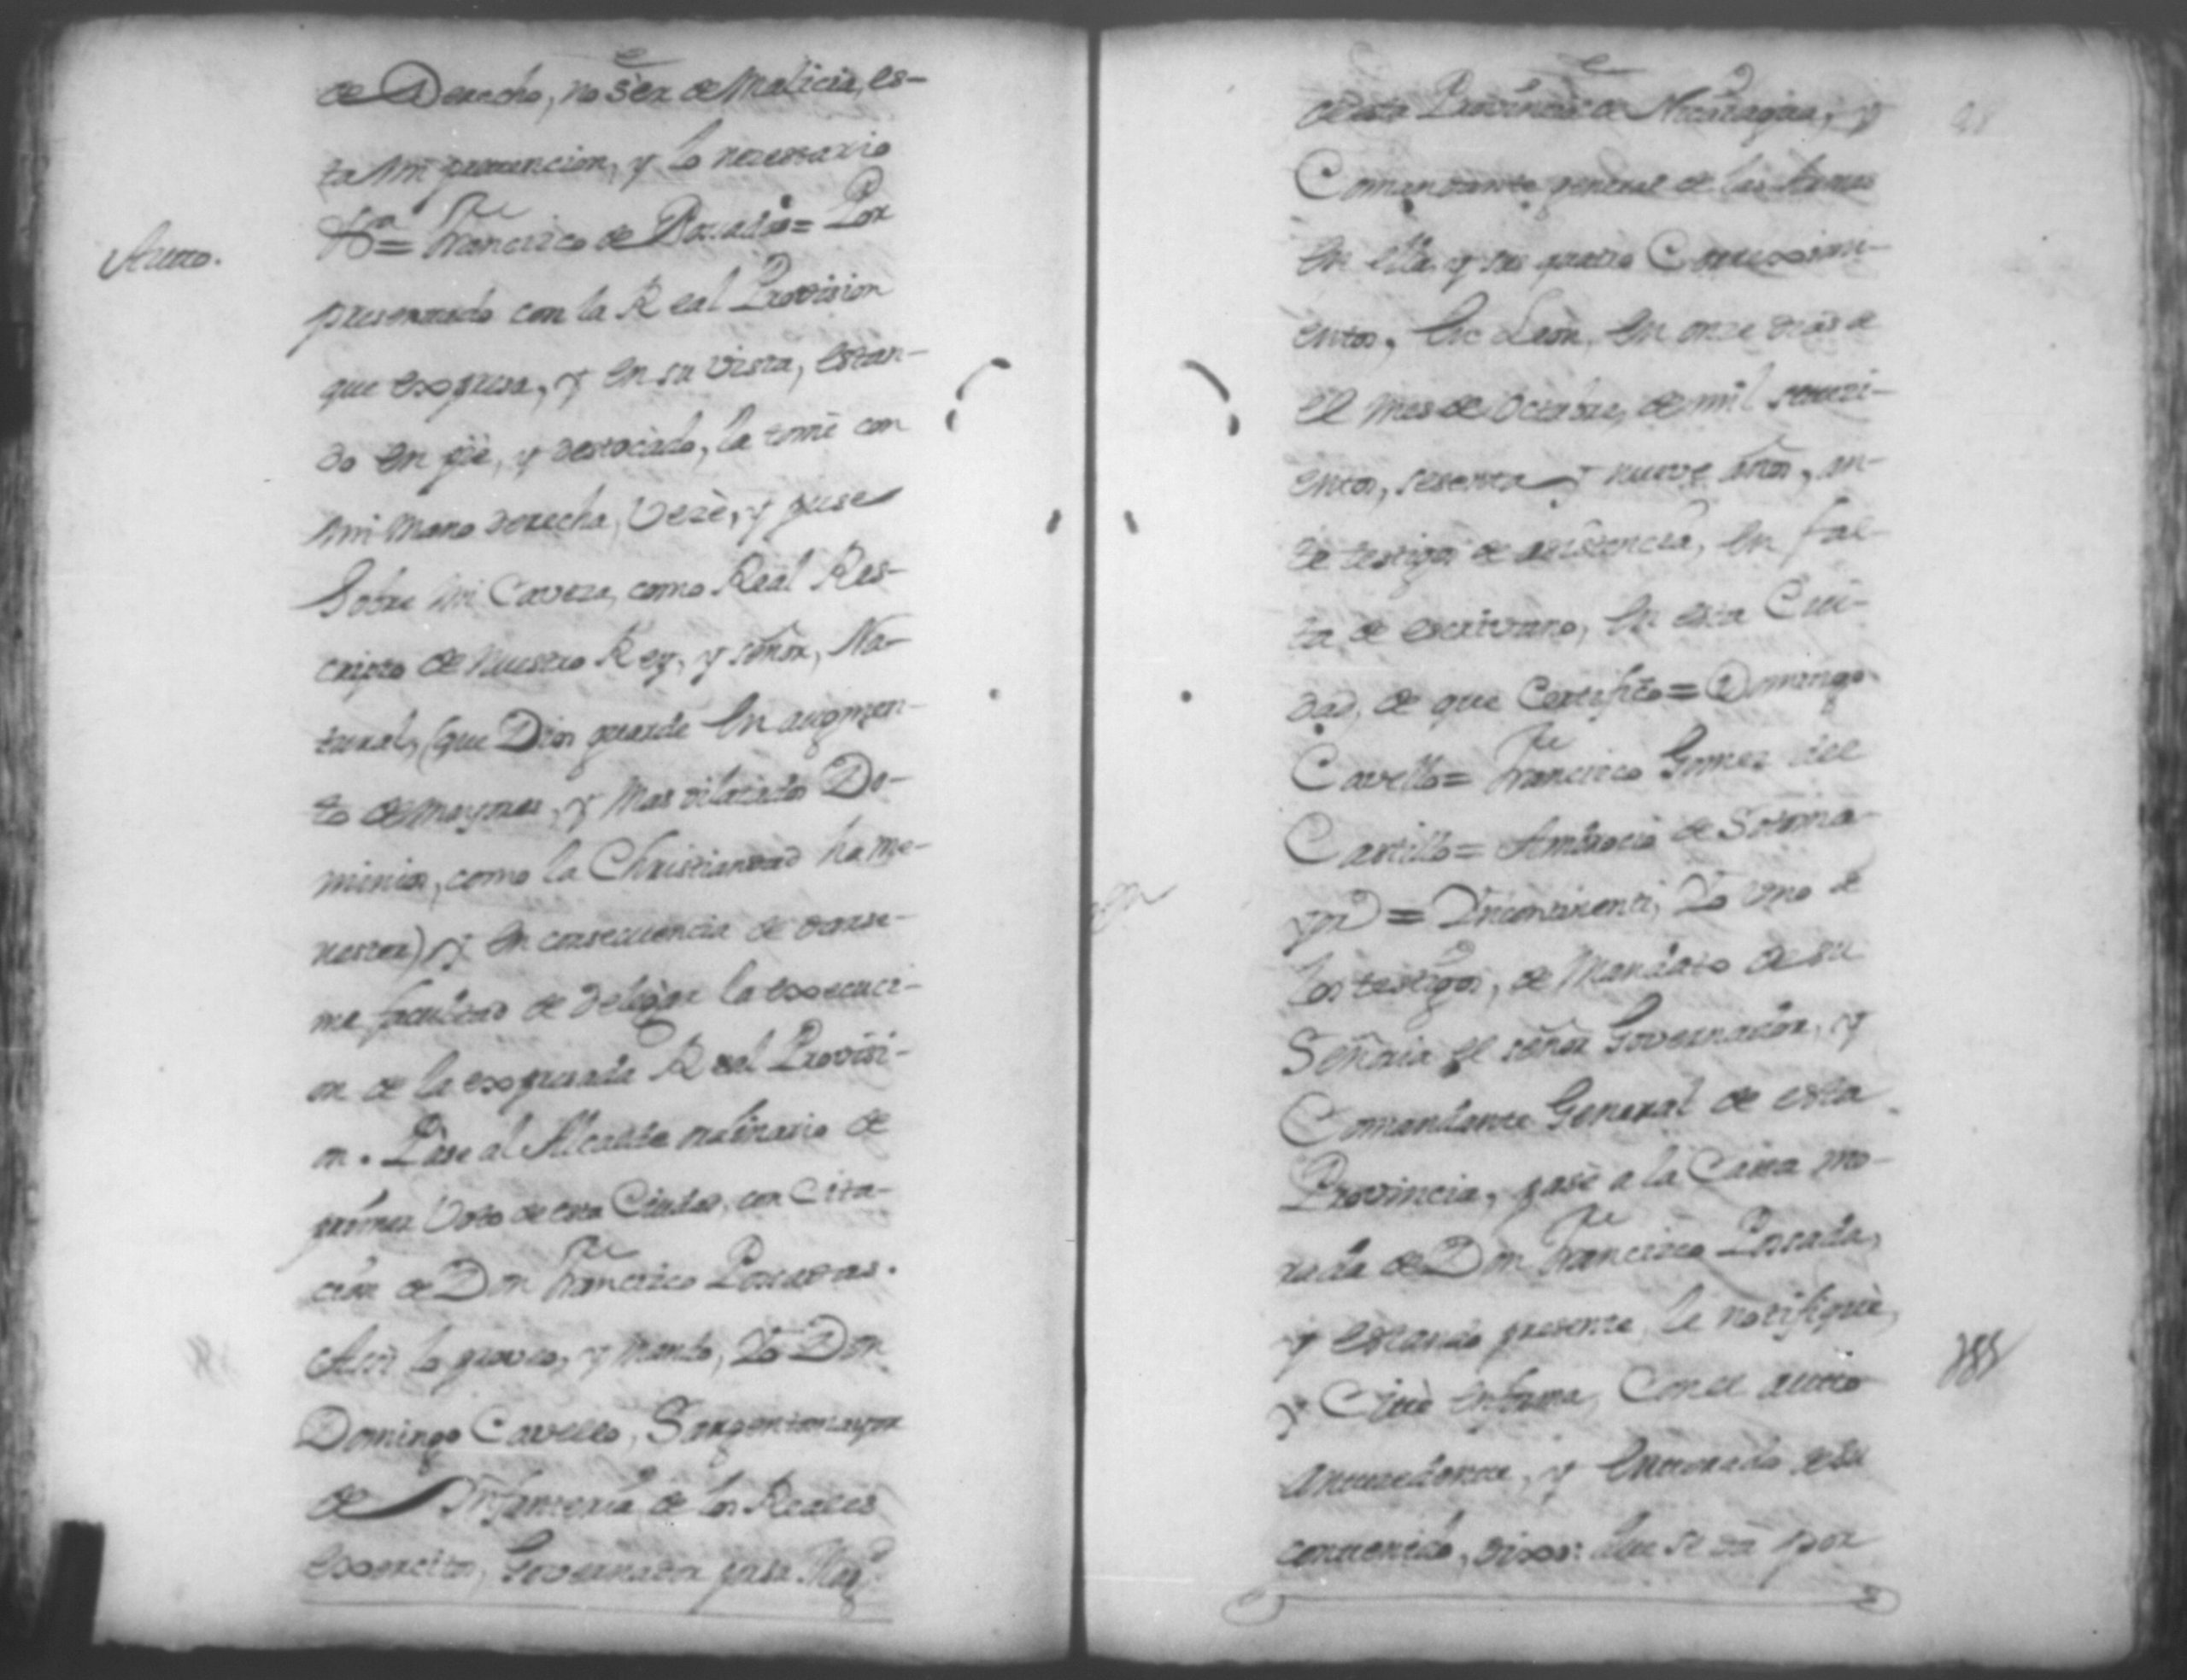 de Derecho, no ser de Malicia, es-
ta mi presencion, y lo necessario
Auto.
Vª= Franrcisco de Posada= Por
presentado con la Real Provision
que expresa, y en su vista, estan-
do en piè, y destocado, la tomè con
mi Mano derecha, vezè, y puse
Sobre mi Caveza, como Real Res-
cripto de Nuestro Rey, y señor, Na-
tural, (que Dios guarde en augmen-
to de mayores, y Mas dilatados Do-
minios, como la Christiandad ha me-
nester) y en consecuencia de darse-
me facultad de delegar la execuci-
on de la expresada Real Provisi-
on. Pase al Alcalde ordinario de
primer Voto de esta Ciudad, con Cita-
ción de Don Franrcisco Posadas.
Assi lo proveo, y mando, Yo Don
Domingo Cavello, Sargentomayor
de Infanteria de los Reales
exercitos, Governador por su Magᵈ.
de esta Provincia de Nicaragua, y
Comandante general de las Armas
en ella, y sus quatro Correximi-
entos, en Leon, en onze dias de
el mes de Octubre, de mil seteci-
entos, sesenta y nueve años, an-
te testigos de assistencia, en fal-
ta de escrivano, en esta Ciu-
dad, de que Certifico= Domingo
Cavello= Franrcisco Gomez del
Castillo= Ambrocio de Sotoma-
yor = Incontinenti, Yo uno de
los testigos, de Mandato de su
Señoria el señor Governador, y
Comandante General de esta
Provincia, pasè a la Cassa mo-
rada de Don Franrcisco Posada,
y estando presente, le notifiquè,
y Citè en forma, Con el auto
antecedente, y enterado de su
contenido, dixo: que se dà por